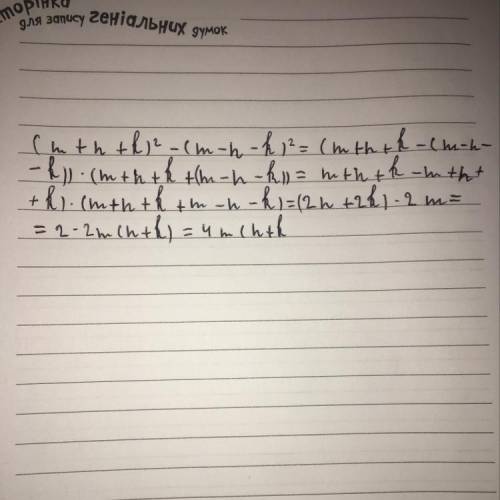 сторінка
для запису геніальних думок
(m + n + k)² - (m - n - k)² = (m + n + k - (m - n -
- k)) · (m + n + k + (m - n - k)) = m + n + k - m + n +
+ k) · (m + n + k + m - n - k) = (2n + 2k) · 2m =
= 2 · 2m (n + k) = 4m (n + k